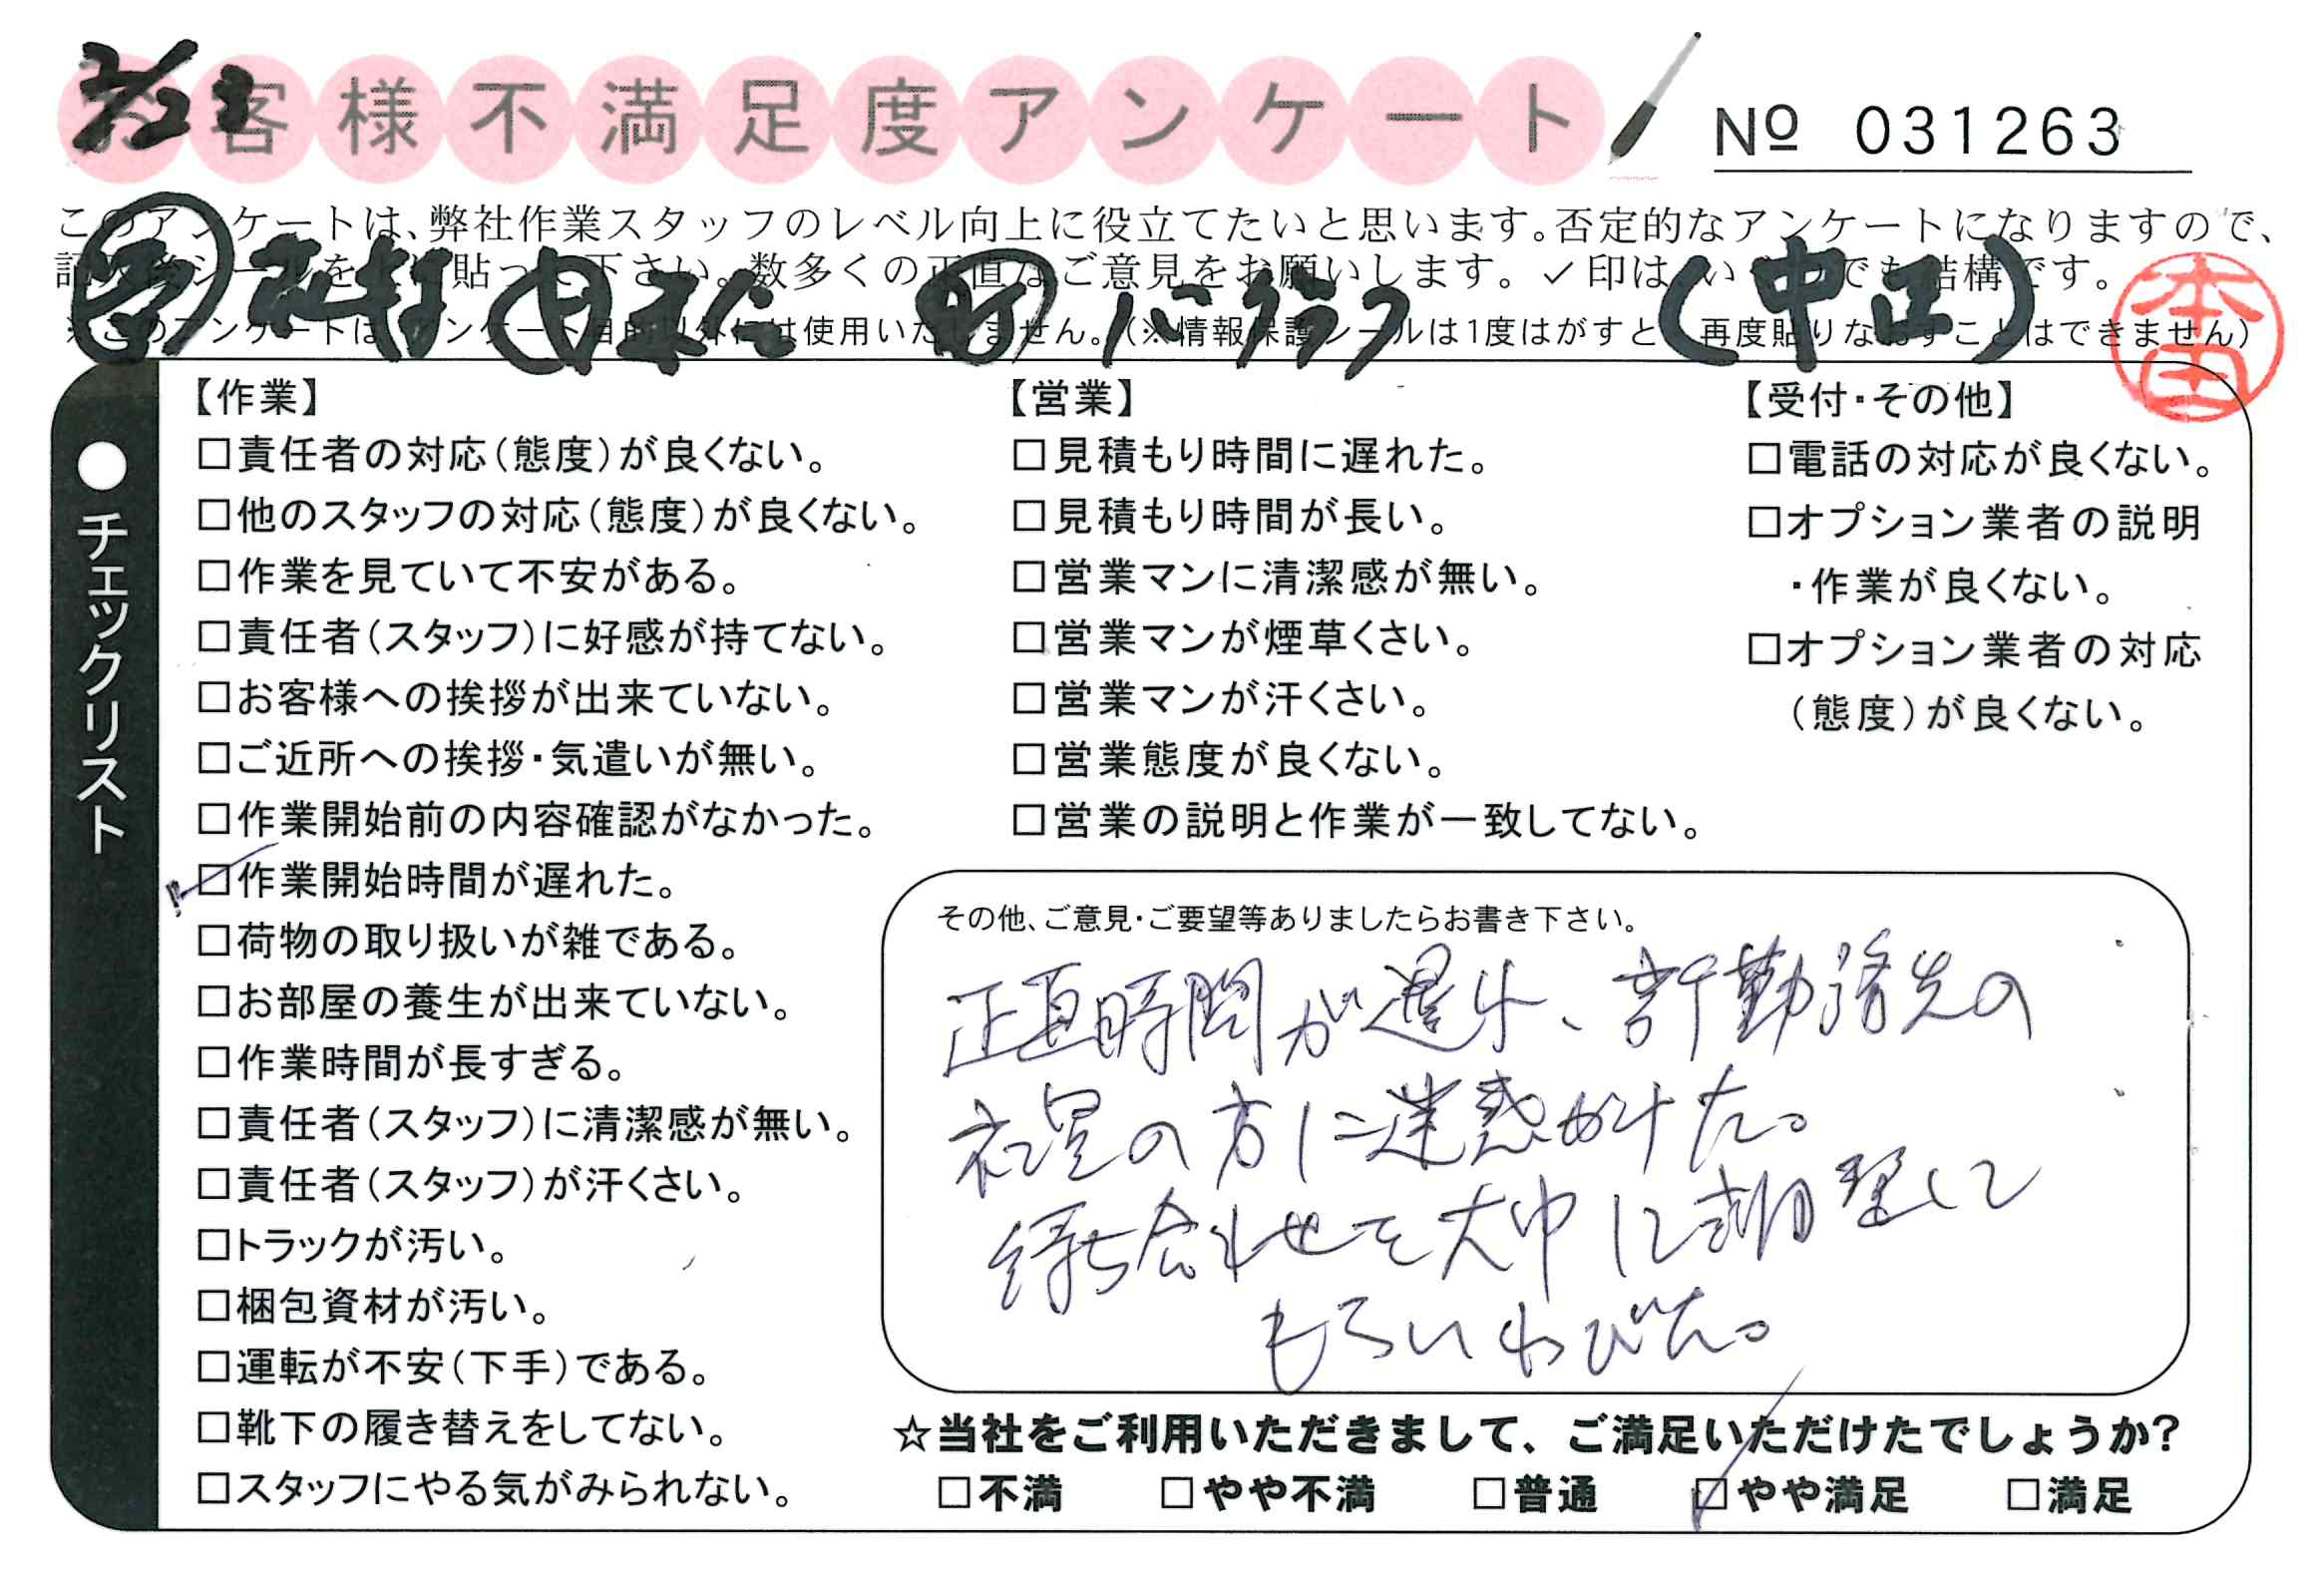 お客様不満足度アンケート
No 031263
このアンケートは、弊社作業スタッフのレベル向上に役立てたいと思います。否定的なアンケートになりますので、
記入後シールを 貼って下さい。数多くの正直なご意見をお願いします。✓印は いくつでも結構です。
※このアンケートは、アンケート目的以外には使用いたしません。(※情報保護シールは1度はがすと、再度貼りなおすことはできません)
(中正)
本田
●チェックリスト
【作業】
□責任者の対応(態度)が良くない。
□他のスタッフの対応(態度)が良くない。
□作業を見ていて不安がある。
□責任者(スタッフ)に好感が持てない。
□お客様への挨拶が出来ていない。
□ご近所への挨拶・気遣いが無い。
□作業開始前の内容確認がなかった。
☑作業開始時間が遅れた。
□荷物の取り扱いが雑である。
□お部屋の養生が出来ていない。
□作業時間が長すぎる。
□責任者(スタッフ)に清潔感が無い。
□責任者(スタッフ)が汗くさい。
□トラックが汚い。
□梱包資材が汚い。
□運転が不安(下手)である。
□靴下の履き替えをしてない。
□スタッフにやる気がみられない。
【営業】
□見積もり時間に遅れた。
□見積もり時間が長い。
□営業マンに清潔感が無い。
□営業マンが煙草くさい。
□営業マンが汗くさい。
□営業態度が良くない。
□営業の説明と作業が一致してない。
【受付・その他】
□電話の対応が良くない。
□オプション業者の説明
・作業が良くない。
□オプション業者の対応
(態度)が良くない。
その他、ご意見・ご要望等ありましたらお書き下さい。
正直時間が遅れ、 勤務先の
の方に迷惑かけた。
待ち合わせを大巾に調整して
もらいわびた。
☆当社をご利用いただきまして、ご満足いただけたでしょうか?
□不満 □やや不満 □普通 ☑やや満足 □満足